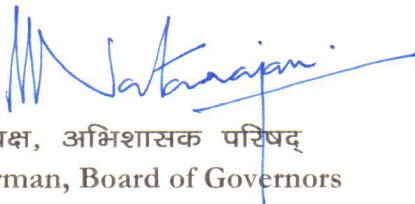 Natarajan
यक्ष, अभिशासक परिषद्
rman, Board of Governors